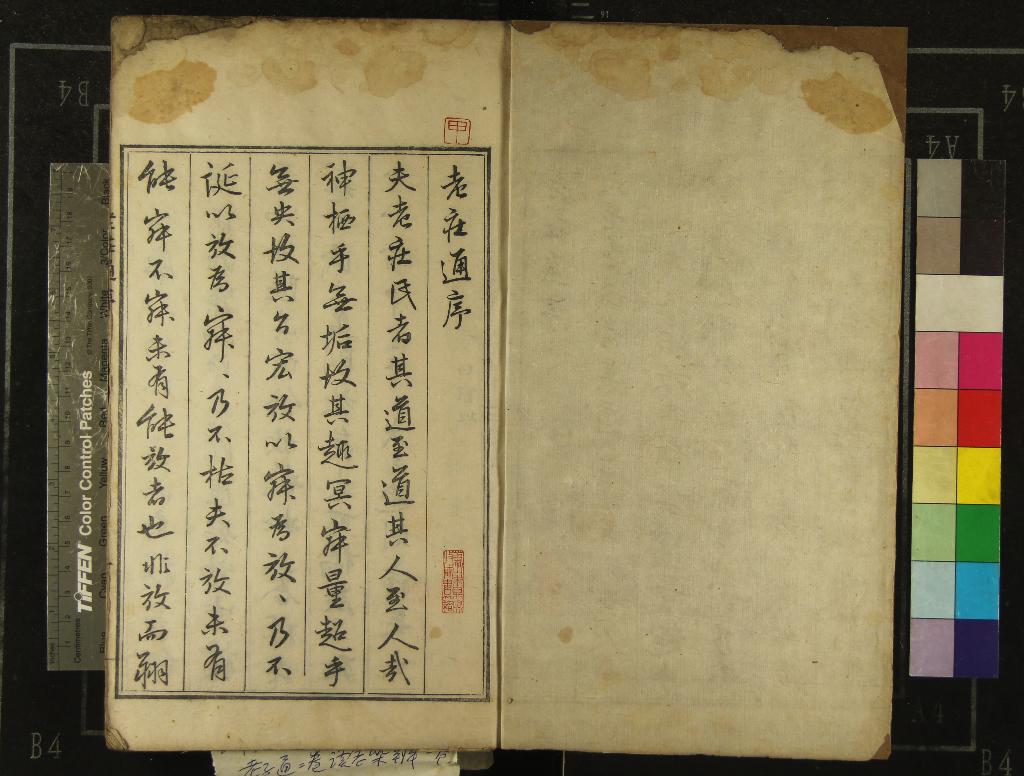 老莊通序
夫老莊氏者其道至道其人至人哉
神栖乎無垢故其趣冥寂量超乎
無央故其言宏放以寂為放、乃不
誕以放為寂、乃不枯夫不放未有
能寂不寂未有能放者也非放而翔
甲
TIFFEN Color Control Patches
Centimetres
Inches
Black
White
Magenta
Red
Yellow
Green
Cyan
Blue
B4
A4
B4
A4
B4
91